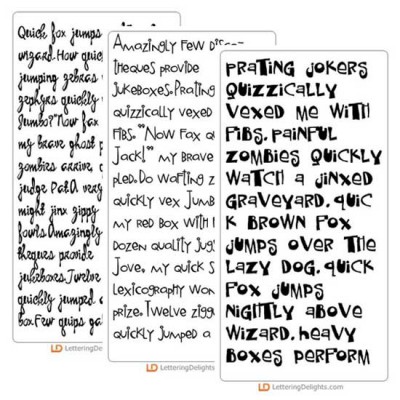 Quick fox jumps
wizard. How quic
jumping zebras
zephyrs quickly
Jumbo?" Now fax
my brave ghost p
zombies arrive,
judge Pat.A very
might jinx zippy
fowls.Amazingly
theques provide
jukeboxes.Twelve
quickly jumped a
box.Few quips ga
LD LetteringDelights
Amazingly few discot
theques provide
jukeboxes.Prating
quizzically vexed
fibs. "Now fax qu
Jack!" my brave
pled.Do wafting z
quickly vex Jumb
my red box with f
dozen quality jugs
Jove, my quick s
lexicography won
prize.Twelve zigg
quickly jumped a
LD LetteringDelights
Prating jokers
quizzically
vexed me with
fibs. Painful
zombies quickly
watch a jinxed
graveyard. quic
k brown fox
jumps over the
lazy dog. quick
fox jumps
nightly above
wizard. heavy
boxes perform
LD LetteringDelights.com